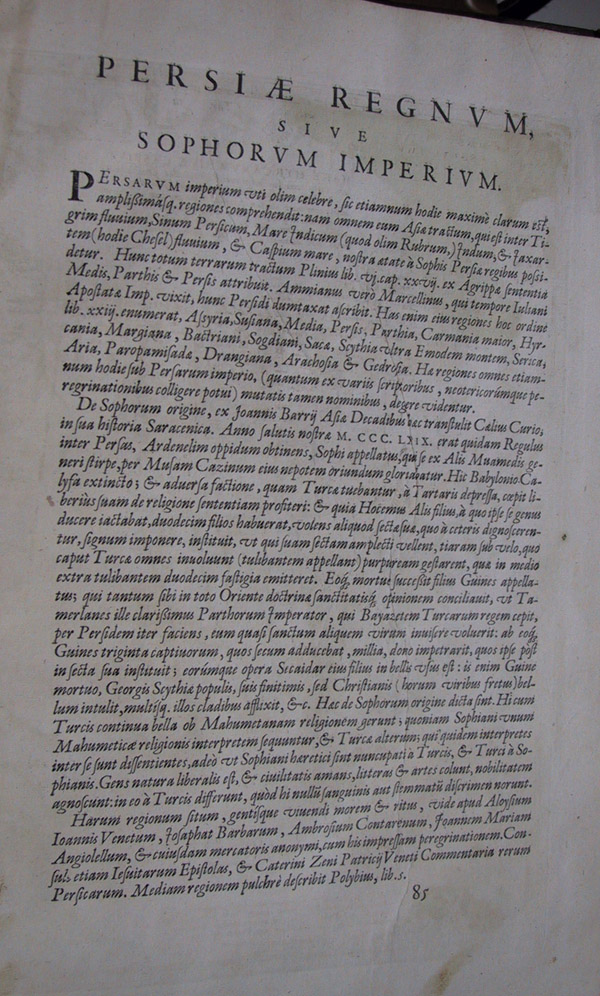 PERSIÆ REGNVM,
SIVE
SOPHORVM IMPERIVM.
PERSARVM imperium vti olim celebre, sic etiamnum hodie maximè clarum est,
amplißimásq. regiones comprehendit: nam omnem eum Asiæ tractum, qui est inter Ti-
grim fluuium, Sinum Persicum, Mare Indicum (quod olim Rubrum,) Indum, & Iaxar-
tem (hodie Chesel) fluuium, & Caspium mare, nostra ætate à Sophis Persiæ regibus poßi-
detur. Hunc totum terrarum tractum Plinius lib. vj. cap. xxvij. ex Agrippæ sententia
Medis, Parthis & Persis attribuit. Ammianus verò Marcellinus, qui tempore Iuliani
Apostatæ Imp. vixit, hunc Persidi dumtaxat ascribit. Has enim eius regiones hoc ordine
lib. xxiij. enumerat, Assyria, Susiana, Media, Persis, Parthia, Carmania maior, Hyr-
cania, Margiana, Bactriani, Sogdiani, Sacæ, Scythia vltra Emodem montem, Serica,
Aria, Paropamisadæ, Drangiana, Arachosia & Gedrosia. Hæ regiones omnes etiam-
num hodie sub Persarum imperio, (quantum ex variis scriptoribus, neotericorúmque pe-
regrinationibus colligere potui) mutatis tamen nominibus, degere videntur.
De Sophorum origine, ex Joannis Barrij Asiæ Decadibus hæc transtulit Cælius Curio,
in sua historia Saracenica. Anno salutis nostræ M. CCC. LXIX. erat quidam Regulus
inter Persas, Ardenelim oppidum obtinens, Sophi appellatus, qui se ex Alis Muamedis ge-
neri stirpe, per Musam Cazinum eius nepotem oriundum gloriabatur. Hic Babylonio Ca-
lyfa extincto; & aduersa factione, quam Turcæ tuebantur, à Tartaris depressa, cœpit li-
beriùs suam de religione sententiam profiteri: & quia Hocemus Alis filius, à quo ipse se genus
ducere iactabat, duodecim filios habuerat, volens aliquod sectæ suæ, quo à ceteris dignosceren-
tur, signum imponere, instituit, vt qui suam sectam amplecti vellent, tiaram sub velo, quo
caput Turcæ omnes inuoluunt (tulibantem appellant) purpuream gestarent, quæ in medio
extra tulibantem duodecim fastigia emitteret. Eoq́, mortuo successit filius Guines appella-
tus; qui tantum sibi in toto Oriente doctrinæ sanctitatisq́, opinionem conciliauit, vt Ta-
merlanes ille clarißimus Parthorum Imperator, qui Bayazetem Turcarum regem cepit,
per Persidem iter faciens, eum quasi sanctum aliquem virum inuisere voluerit: ab eoq́,
Guines triginta captiuorum, quos secum adducebat, millia, dono impetrarit, quos ipse pòst
in secta sua instituit; eorúmque opera Secaidar eius filius in bellis vsus est: is enim Guine
mortuo, Georgis Scythiæ populis, suis finitimis, sed Christianis (horum viribus fretus) bel-
lum intulit, multisq́. illos cladibus afflixit, &c. Hæc de Sophorum origine dicta sint. Hi cum
Turcis continua bella ob Mahumetanam religionem gerunt; quoniam Sophiani vnum
Mahumeticæ religionis interpretem sequuntur, & Turcæ alterum; qui quidem interpretes
inter se sunt dissentientes, adeò vt Sophiani hæretici sint nuncupati à Turcis, & Turci à So-
phianis. Gens natura liberalis est, & ciuilitatis amans, litteras & artes colunt, nobilitatem
agnoscunt: in eo à Turcis differunt, quòd hi nullũ sanguinis aut stemmatũ discrimen norunt.
Harum regionum situm, gentísque viuendi morem & ritus, vide apud Aloysium
Ioannis Venetum, Josaphat Barbarum, Ambrosium Contarenum, Joannem Mariam
Angiolellum, & cuiusdam mercatoris anonymi, cum his impressam peregrinationem. Con-
sule etiam Iesuitarum Epistolas, & Caterini Zeni Patricij Veneti Commentaria rerum
Persicarum. Mediam regionem pulchrè describit Polybius, lib. 5.
85